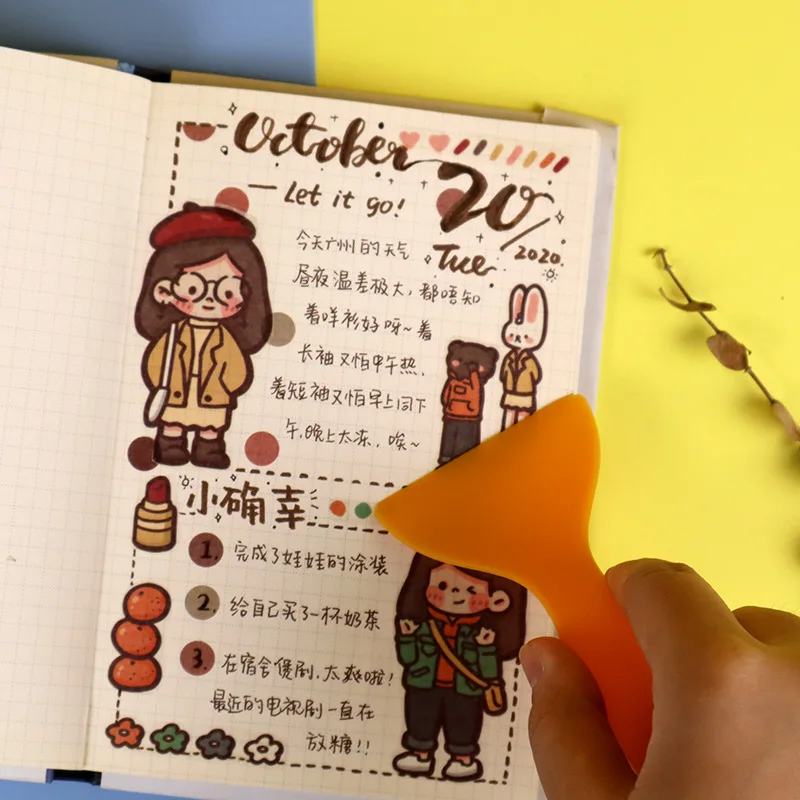 October
20/2020.
— Let it go!
Tue
今天广州的天气
昼夜温差极大，都唔知
着咩衫好呀~着
长袖又怕中午热，
着短袖又怕早上同下
午，晚上太冻，唉~
小确幸
1. 完成了娃娃的涂装
2. 给自己买了一杯奶茶
3. 在宿舍煲剧，太爽啦！
最近的电视剧一直在
放糖!!